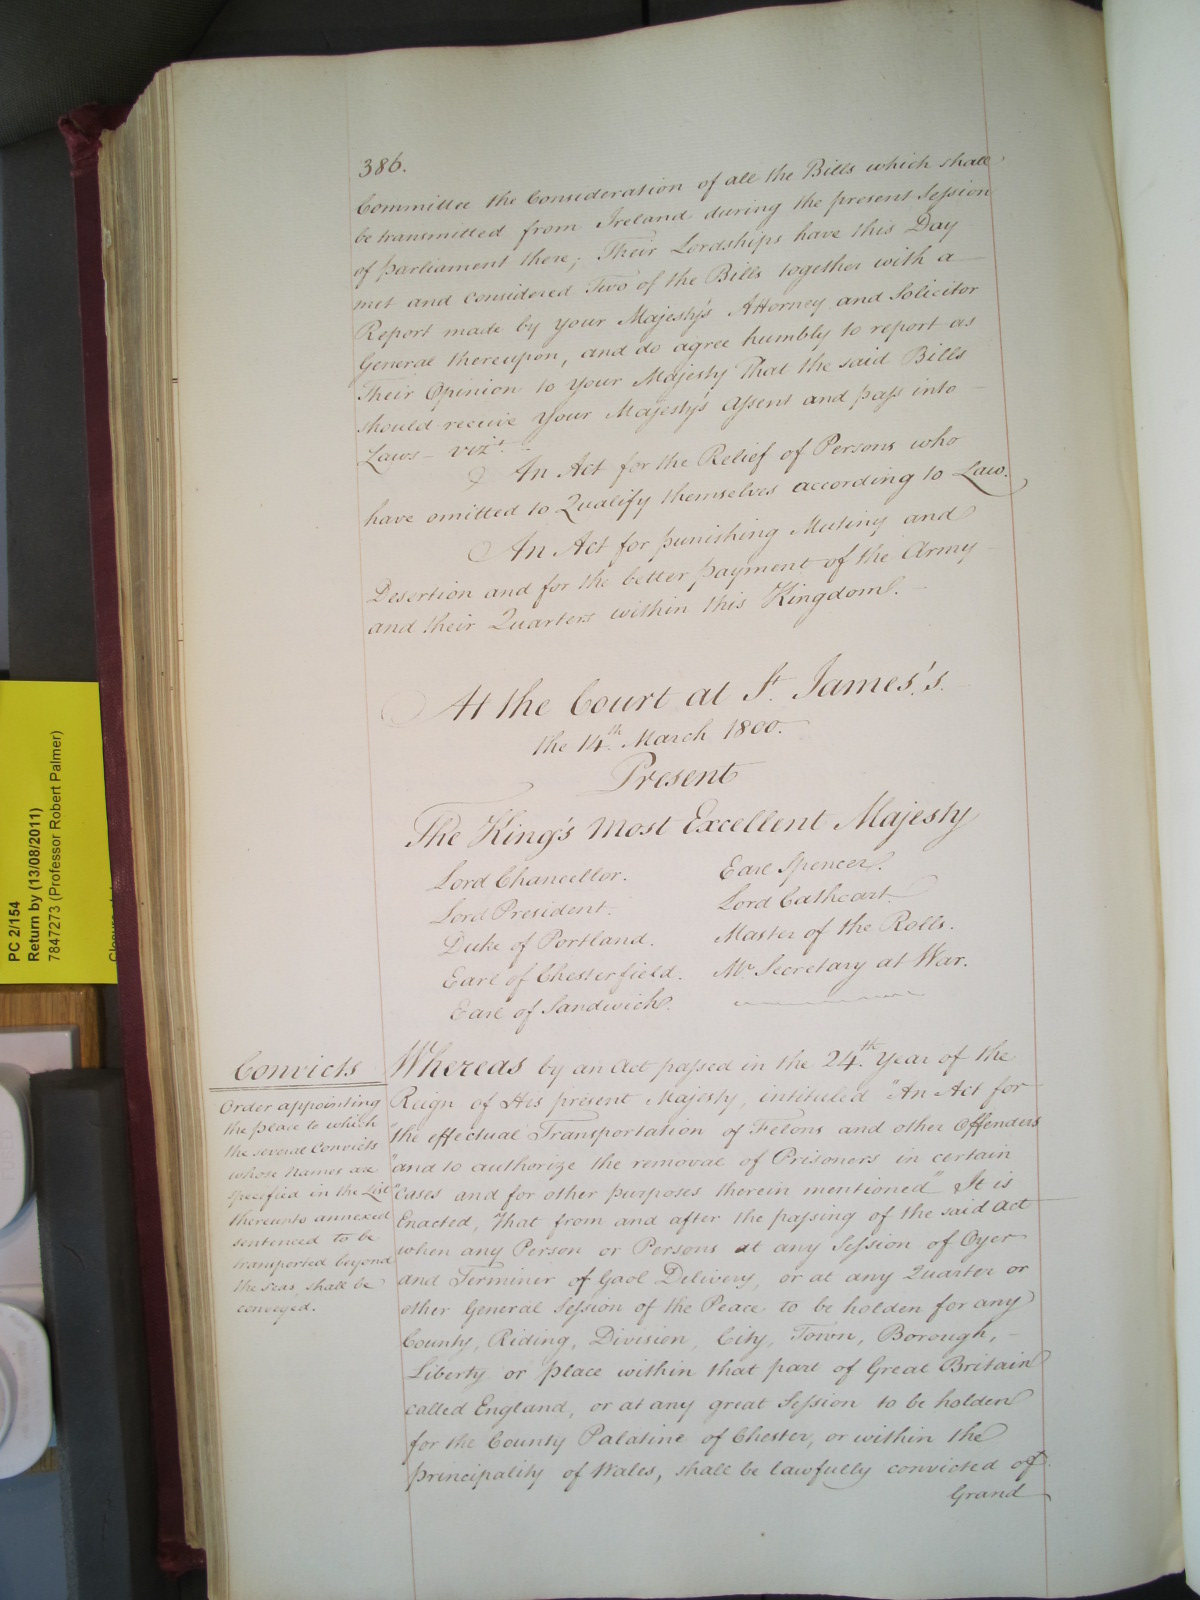 386.
Committee the Consideration of all the Bills which shall
be transmitted from Ireland during the present Session
of parliament there; Their Lordships have this Day
met and considered Two of the Bills together with a
Report made by your Majesty's Attorney and Solicitor
General thereupon, and do agree humbly to report as
Their Opinion to your Majesty That the said Bills
should receive Your Majesty's Assent and pass into
Laws - vizt.
An Act for the Relief of Persons who
have omitted to Qualify themselves according to Law.
An Act for punishing Mutiny and
Desertion and for the better payment of the Army
and their Quarters within this Kingdom.
At the Court at St. James's.
the 14th. March 1800.
Present
The King's Most Excellent Majesty
Lord Chancellor.
Lord President.
Duke of Portland.
Earl of Chesterfield.
Earl of Sandwich.
Earl Spencer.
Lord Cathcart.
Master of the Rolls.
Mr. Secretary at War.
Convicts
Order appointing
the place to which
the several Convicts
whose Names are
specified in the List
thereunto annexed
sentenced to be
transported beyond
the Seas, shall be
conveyed.
Whereas by an Act passed in the 24th. Year of the
Reign of His present Majesty, intituled "An Act for
"the effectual Transportation of Felons and other Offenders
"and to authorize the removal of Prisoners in certain
"Cases and for other purposes therein mentioned" It is
Enacted, That from and after the passing of the said Act
when any Person or Persons at any Session of Oyer
and Terminer of Gaol Delivery, or at any Quarter or
other General Session of the Peace to be holden for any
County, Riding, Division, City, Town, Borough, -
Liberty or place within that part of Great Britain
called England, or at any great Session to be holden
for the County Palatine of Chester, or within the
principality of Wales, shall be lawfully convicted of
Grand
PC 2/154
Return by (13/08/2011)
7847273 (Professor Robert Palmer)